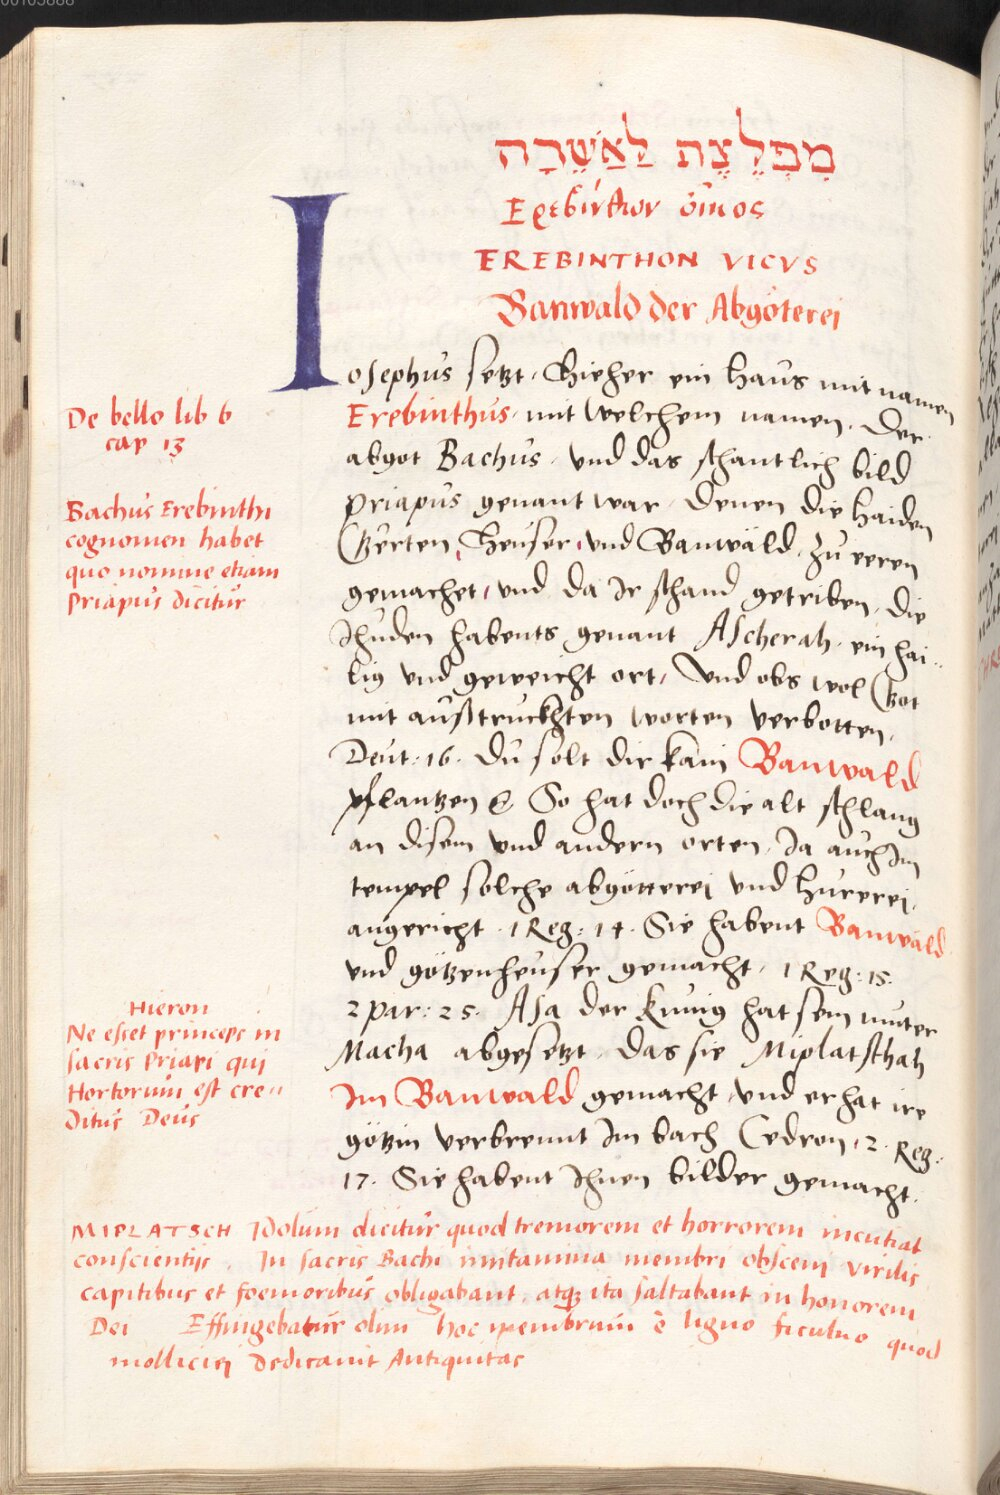 מִפְלֶצֶת לַאַשֵׁרָה
Ερεβίνθων οἶκος
EREBINTHON VICVS
Banwald der Abgöterei
Iosephus setzt hieher ein haus mit namen
Erebinthus, mit welchem namen, der
abgot Bachus, und das schantlich bild
Priapus genant war, denen die Haiden
Gerten, Heuser, und Banwäld zu eeren
gemachet, und da Ir schand getriben, die
Ihuden habents genant Ascherah, ein hai⸗
lig und geweicht ort, Und obs wol Got
mit außtruckhten worten verbotten,
Deut: 16. Du solt dir kain Banwald
pflantzen &. So hat doch die alt schlang
an disem und andern orten, Ja auch Im
tempel solche abgötterei und hurerei,
angericht. 1 Reg: 14. Sie habent Banwäld
und götzenheuser gemacht, 1 Reg: 15.
2 Par: 25. Asa der kunig hat sein muter
Macha abgesetzt, das sie Miplatschah
Im Banwald gemacht, und er hat ire
götzin verbrennt Im bach Cedron, 2. Reg:
17. Sie habent Ihnen bilder gemacht.
De bello lib 6
cap 13
Bachus Erebinthi
cognomen habet
quo nomine etiam
Priapus dicitur
Hieron
Ne esset princeps in
sacris Priapi qui
Hortorum est cre⸗
ditus Deus
MIPLATSCH Idolum dicitur quod tremorem et horrorem incutiat
conscientijs. In sacris Bachi imitamina membri obsceni virilis
capitibus et foemoribus obligabant, atq; ita saltabant in honorem
Dei Effingebatur olim hoc membrum è ligno ficulno quod
molliciei dedicavit Antiquitas